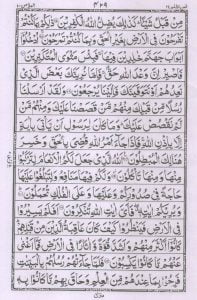 ۴۲۹
مِنْ قَبْلُ شَيْـًٔا ؕ كَذٰلِكَ يُضِلُّ اللّٰهُ الْكٰفِرِيْنَ ۝ ذٰلِكُمْ بِمَا كُنْتُمْ
تَفْرَحُوْنَ فِي الْاَرْضِ بِغَيْرِ الْحَقِّ وَبِمَا كُنْتُمْ تَمْرَحُوْنَ ۝ اُدْخُلُوْٓا
اَبْوَابَ جَهَنَّمَ خٰلِدِيْنَ فِيْهَا ۚ فَبِئْسَ مَثْوَى الْمُتَكَبِّرِيْنَ ۝
فَاصْبِرْ اِنَّ وَعْدَ اللّٰهِ حَقٌّ ۚ فَاِمَّا نُرِيَنَّكَ بَعْضَ الَّذِيْ
نَعِدُهُمْ اَوْ نَتَوَفَّيَنَّكَ فَاِلَيْنَا يُرْجَعُوْنَ ۝ وَلَقَدْ اَرْسَلْنَا
رُسُلًا مِّنْ قَبْلِكَ مِنْهُمْ مَّنْ قَصَصْنَا عَلَيْكَ وَمِنْهُمْ مَّنْ
لَّمْ نَقْصُصْ عَلَيْكَ ؕ وَمَا كَانَ لِرَسُوْلٍ اَنْ يَّاْتِيَ بِاٰيَةٍ
اِلَّا بِاِذْنِ اللّٰهِ ۚ فَاِذَا جَآءَ اَمْرُ اللّٰهِ قُضِيَ بِالْحَقِّ وَخَسِرَ
هُنَالِكَ الْمُبْطِلُوْنَ ۝ اَللّٰهُ الَّذِيْ جَعَلَ لَكُمُ الْاَنْعَامَ لِتَرْكَبُوْا
مِنْهَا وَمِنْهَا تَاْكُلُوْنَ ۝ وَلَكُمْ فِيْهَا مَنَافِعُ وَلِتَبْلُغُوْا عَلَيْهَا
حَاجَةً فِيْ صُدُوْرِكُمْ وَعَلَيْهَا وَعَلَى الْفُلْكِ تُحْمَلُوْنَ ۝
وَيُرِيْكُمْ اٰيٰتِهٖ ۖ فَاَيَّ اٰيٰتِ اللّٰهِ تُنْكِرُوْنَ ۝ اَفَلَمْ يَسِيْرُوْا
فِي الْاَرْضِ فَيَنْظُرُوْا كَيْفَ كَانَ عَاقِبَةُ الَّذِيْنَ مِنْ قَبْلِهِمْ ؕ
كَانُوْٓا اَكْثَرَ مِنْهُمْ وَاَشَدَّ قُوَّةً وَّاٰثَارًا فِي الْاَرْضِ فَمَآ اَغْنٰى
عَنْهُمْ مَّا كَانُوْا يَكْسِبُوْنَ ۝ فَلَمَّا جَآءَتْهُمْ رُسُلُهُمْ بِالْبَيِّنٰتِ
فَرِحُوْا بِمَا عِنْدَهُمْ مِّنَ الْعِلْمِ وَحَاقَ بِهِمْ مَّا كَانُوْا بِهٖ